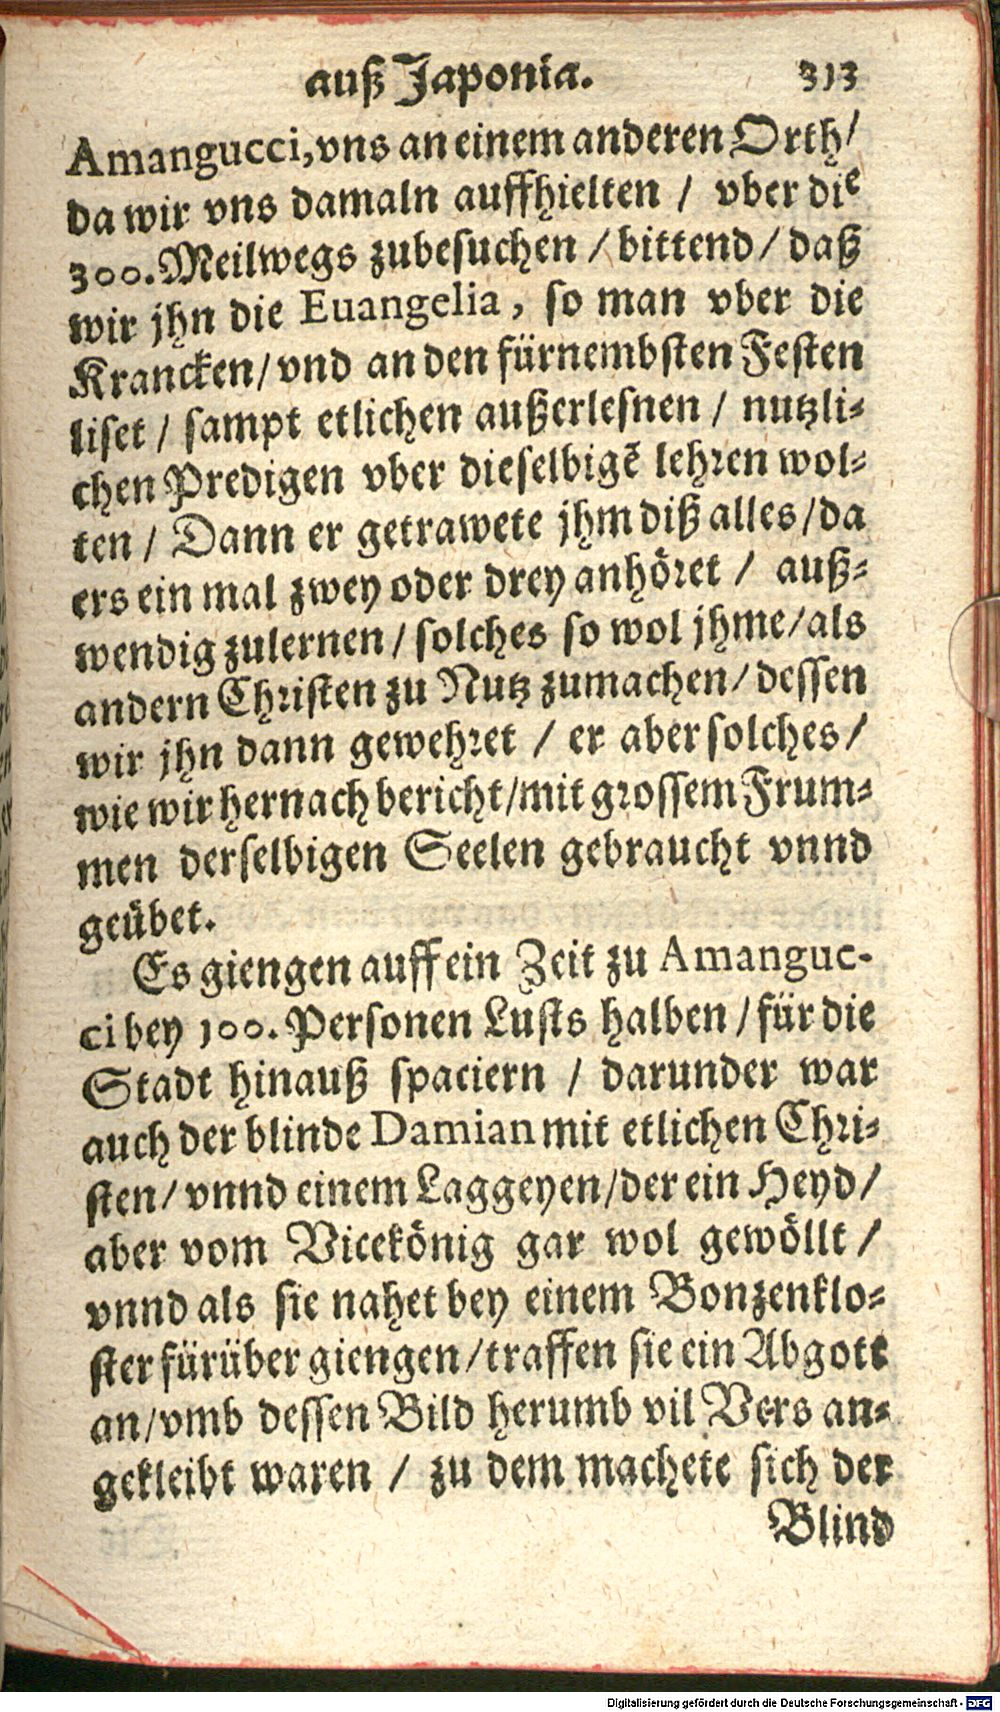 auß Japonia. 313
Amangucci, vns an einem anderen Orth/
da wir vns damaln auffhielten / vber die
300. Meilwegs zubesuchen / bittend / daß
wir jhn die Euangelia, so man vber die
Krancken / vnd an den fürnembsten Festen
liset / sampt etlichen außerlesnen / nutzli-
chen Predigen vber dieselbigē lehren wol-
ten / Dann er getrawete jhm diß alles / da
ers ein mal zwey oder drey anhöret / auß-
wendig zulernen / solches so wol jhme / als
andern Christen zu Nutz zumachen / dessen
wir jhn dann gewehret / er aber solches /
wie wir hernach bericht / mit grossem Frum-
men derselbigen Seelen gebraucht vnnd
geübet.
Es giengen auff ein Zeit zu Amanguc-
ci bey 100. Personen Lusts halben / für die
Stadt hinauß spaciern / darunder war
auch der blinde Damian mit etlichen Chri-
sten / vnnd einem Laggeyen / der ein Heyd /
aber vom Vicekönig gar wol gewöllt /
vnnd als sie nahet bey einem Bonzenklo-
ster fürüber giengen / traffen sie ein Abgott
an / vmb dessen Bild herumb vil Vers an-
gekleibt waren / zu dem machete sich der
Blind
Digitalisierung gefördert durch die Deutsche Forschungsgemeinschaft - DFG